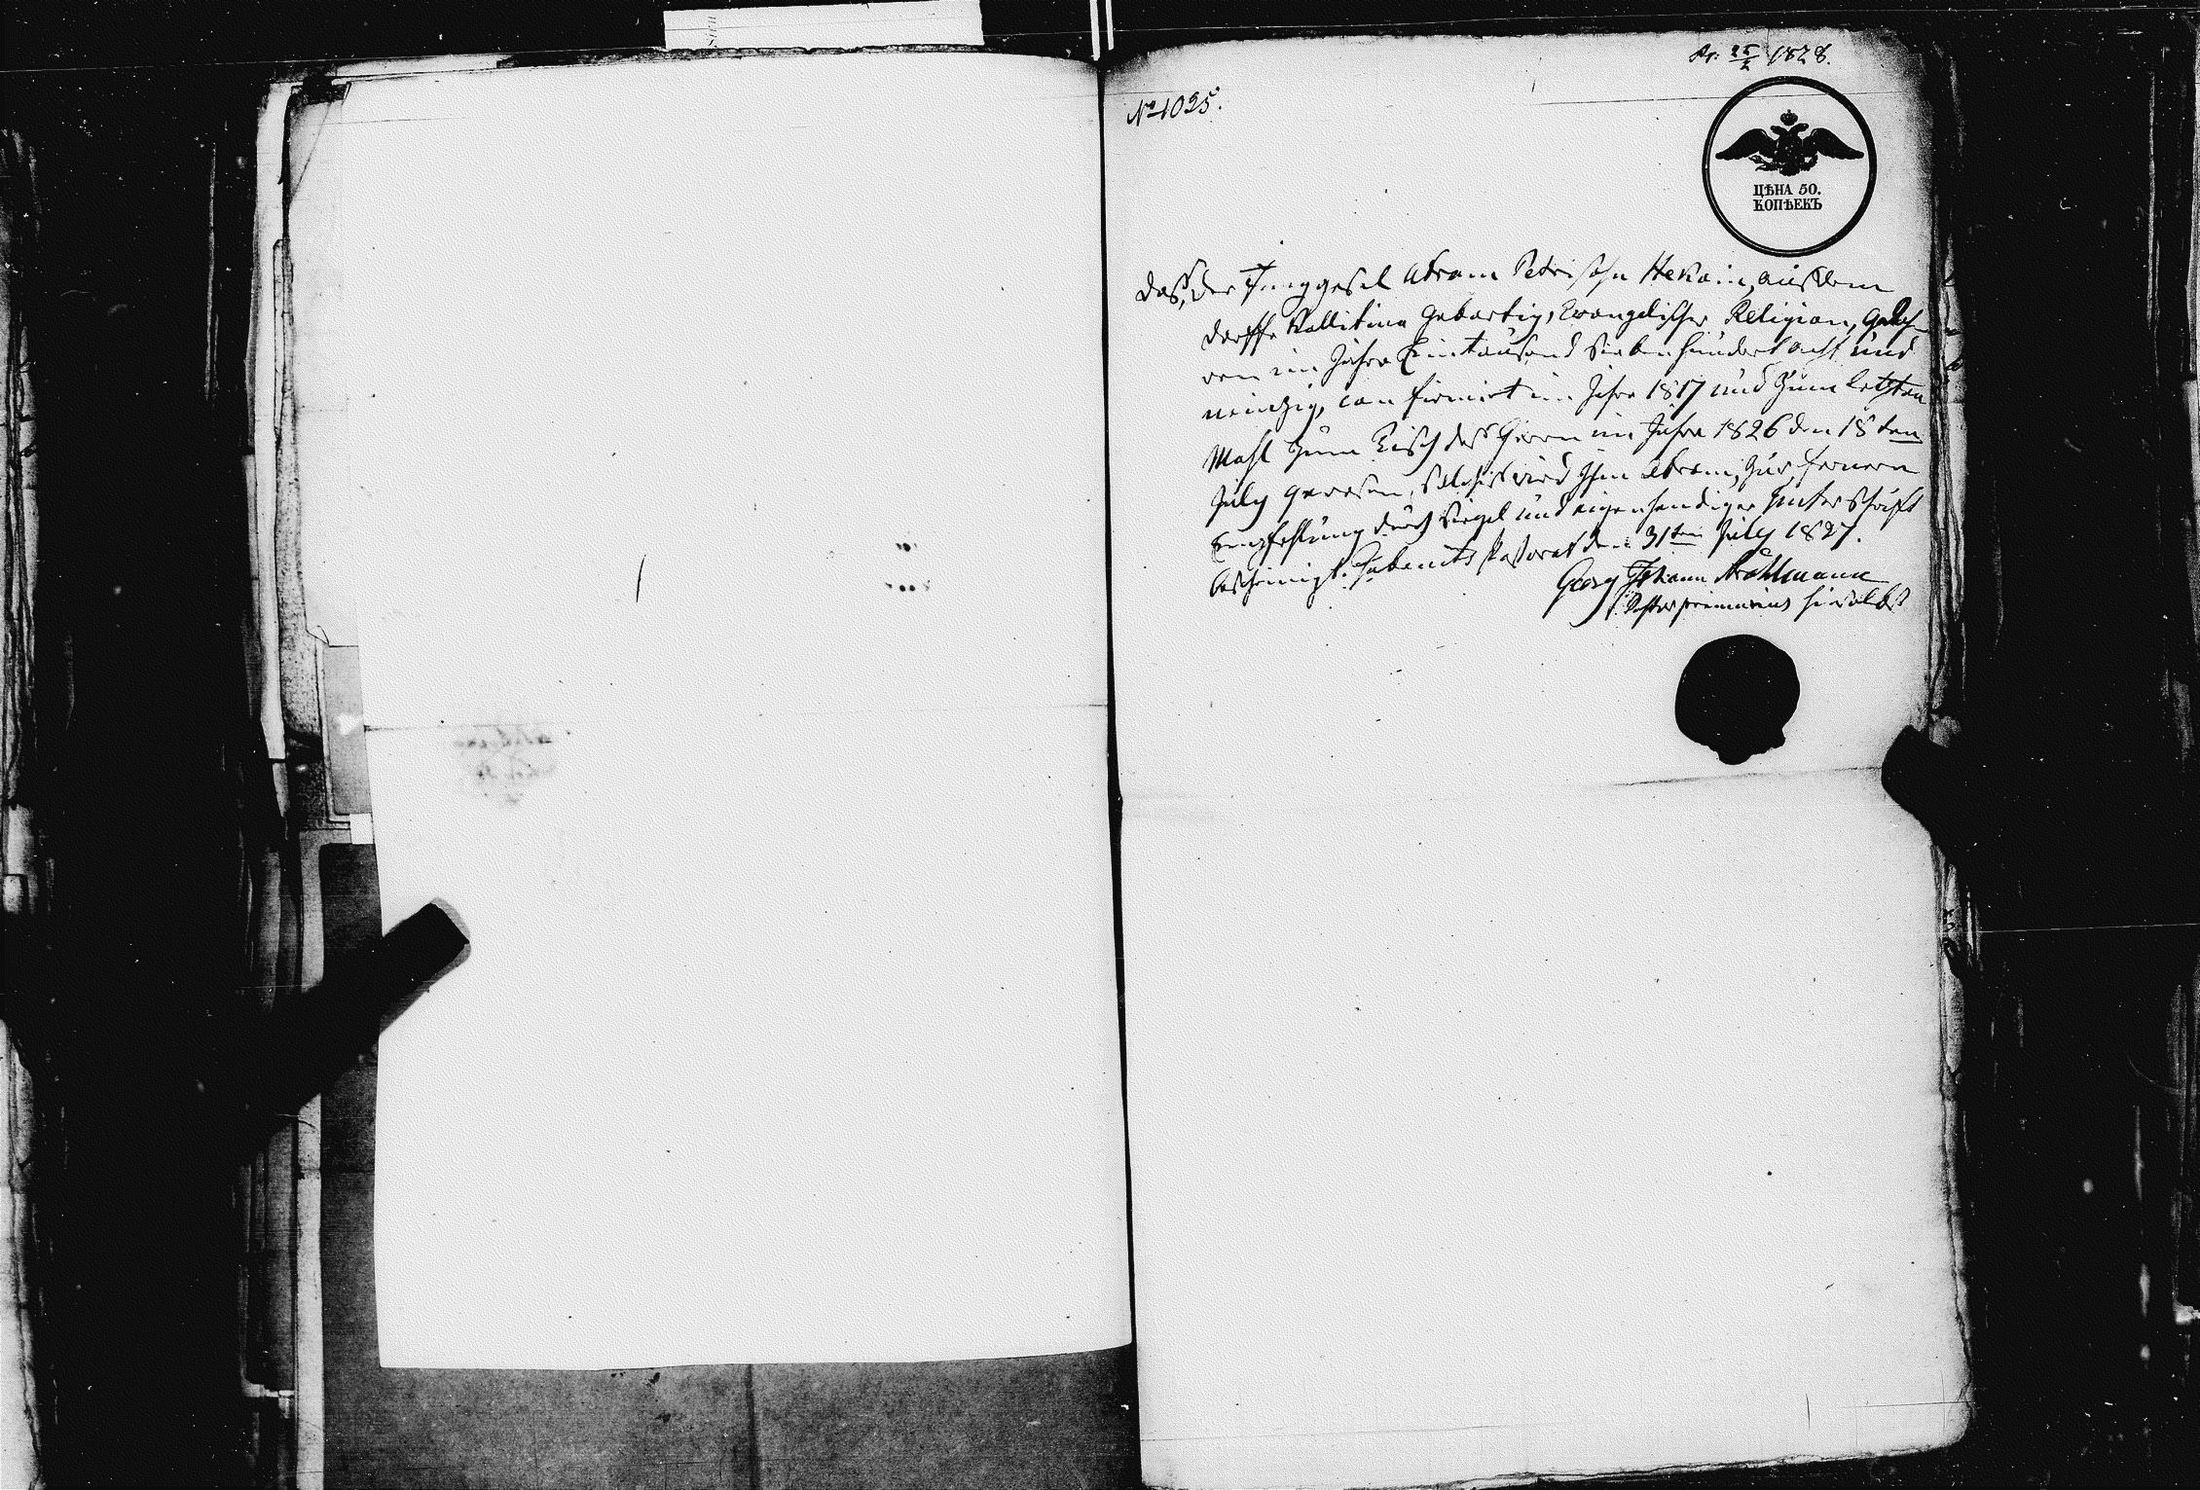 Pr. 25/2 1828.
No 1025.
ЦѢНА 50.
КОПѢЕКЪ
Daß, der Junggesel Abram Petri sohn Hekain, aus dem
Dorffe Kallitina gebürtig, Evangelischer Religion, geboh-
ren im Jahre Eintausend Siebenhundert acht und
neintzig, confirmirt im Jahre 1817 und zum letzten
Mahl zum Tisch des Herrn im Jahre 1826 den 18ten
July gewesen, solches wird Ihm Abram, zur fernern
Empfehlung durch Siegel und eigenhendiger Unterschrift
bescheinigt. Pastorat den 31ten July 1827.
Georg Johann
Pastor primarius hieselbst